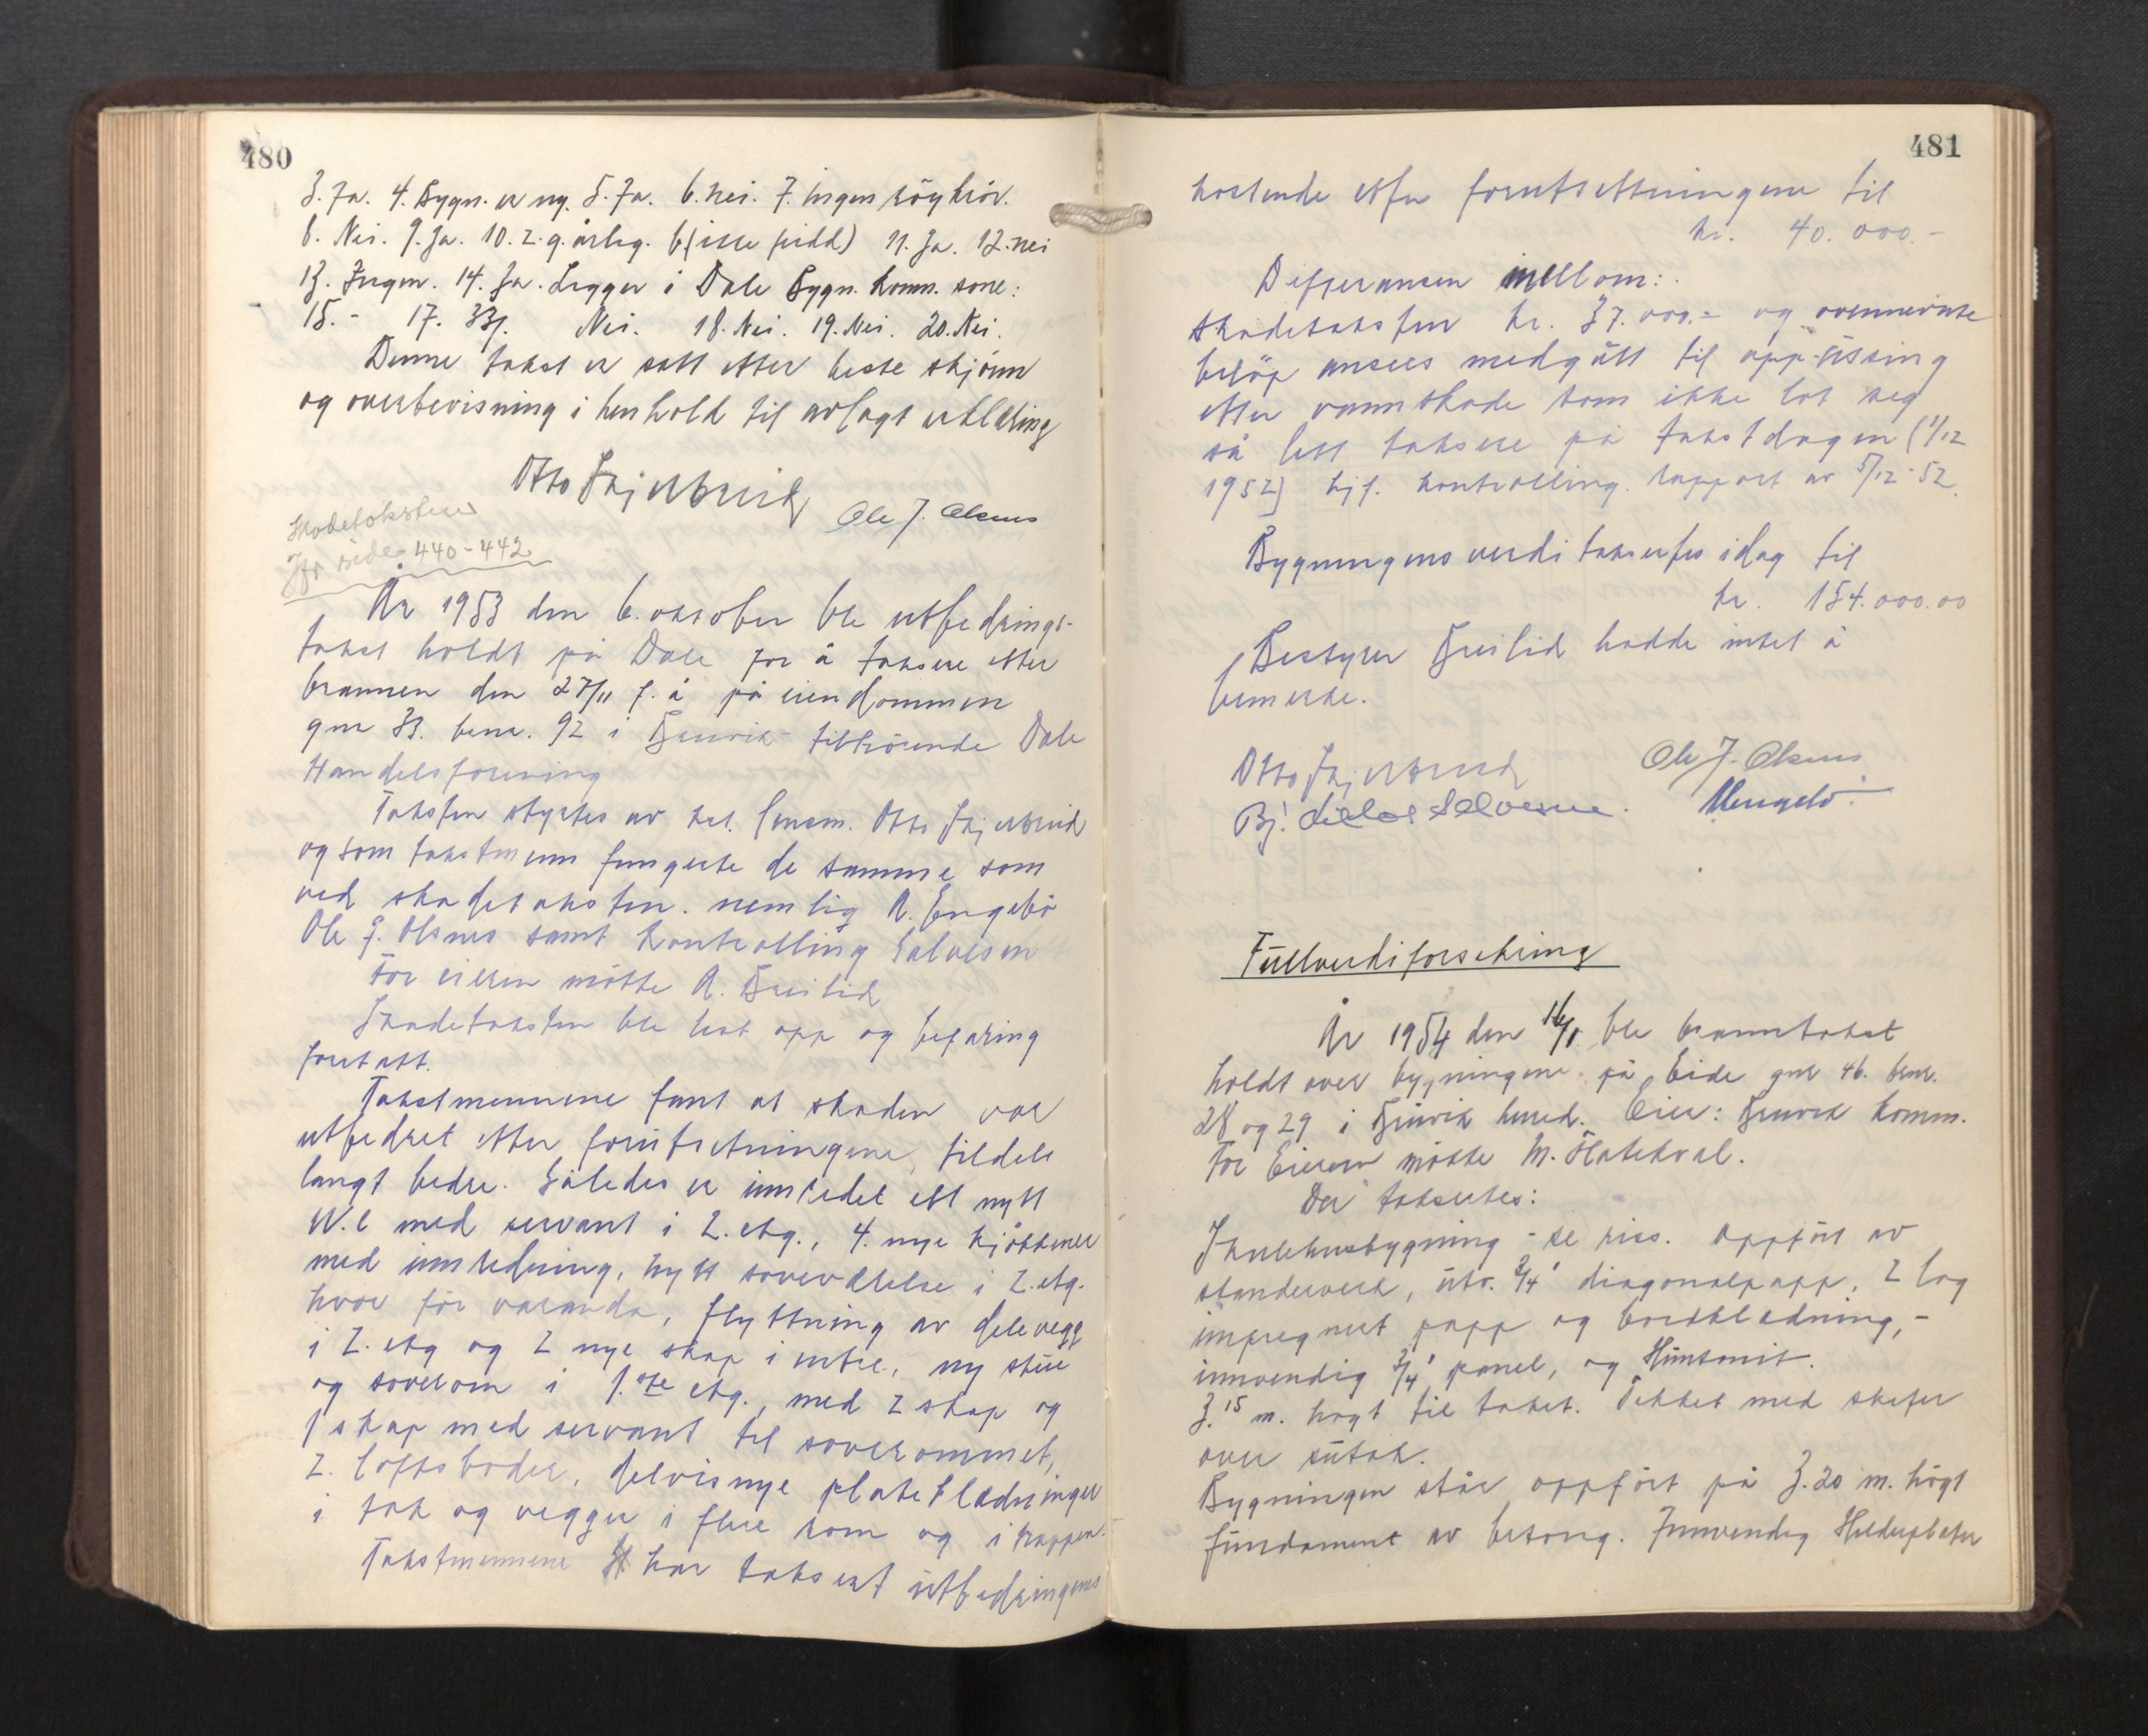 480
3. Ja. 4. Bygn. er ny. 5. Ja. 6. nei. 7. ingen röykrör.
8. Nei. 9. Ja. 10. 2. g. årleg. 11. Ja. 12. nei
13. Ingen. 14. Ja. Ligger i Dale Bygn. komm. sone:
15. - 17. 33/. Nei. 18. Nei. 19. Nei. 20. Nei.
Denne takst er satt etter beste skjönn
og overbevisning i henhold til avlagt erklæring
Otto Skjerbreid Ole J. Olsnes
Skadetaksten
Jfr side 440-442
År 1953 den 6. oktober ble utbedrings-
takst holdt på Dale for å taksere etter
brannen den 27/11 f. å på eiendommen
gnr 33. bnr. 92 i Bruvik tilhörende Dale
Handelsforening
Taksten styrtes av kst. lensm. Otto Skjerbreid
og som takstmenn fungerte de samme som
ved skadetaksten. nemlig A. Engebö
Ole J. Olsnes samt kontrolling Salvesen
For eieren mötte A. Breilid
Skadetaksten ble lest opp og befaring
foretatt.
Takstmennene fant at skaden var
utbedret etter forutsetningene, tildels
langt bedre. Således er innredet ett nytt
W.C med servant i 2. etg., 4. nye kjökkener
med innredning, nytt soveværelse i 2. etg.
hvor för varanda, flyttning av delevegg
i 2. etg og 2 nye skap i entre, ny stue
og soverom i 1.ste etg., med 2 skap og
1 skap med servant til soverommet,
2. loftsboder, delvis nye platekledninger
i tak og vegger i flere rom og i trappen.
Takstmennene har taksert utbedringens
481
kostende etter forutsettningene til
kr. 40.000.-
Differansen mellom:
skadetaksten kr. 37.000.- og ovennevnte
belöp ansees medgått til opp-
etter vannskade som ikke lot seg
så lett taksere på takstdagen (1/12
1952) kjf. kontrolling. rapport av 5/12-52.
Bygningens verdi takseres idag til
kr. 154.000.00
Bestyrer Breilid hadde intet å
bemerke.
Otto Skjerbreid Ole J. Olsnes
Fullverdiforsekring
År 1954 den ble branntakst
holdt over bygningene på Eide gnr 46. bnr.
28 og 29 i Bruvik herred. Eier: Bruvik komm.
For Eieren mötte M. Flatekval.
Der takseres:
Skulehusbygning - se riss. Oppfört av
standerverk, utv. 3/4" diagonalpapp, 2 lag
impregnert papp og bordkledning,-
innvendig 3/4" panel, og Huntonit.
3.15 m. högt til taket. Tekket med skifer
over sutak.
Bygningen står oppfört på 3.20 m. högt
fundament av betong. Innvendig Holderplater